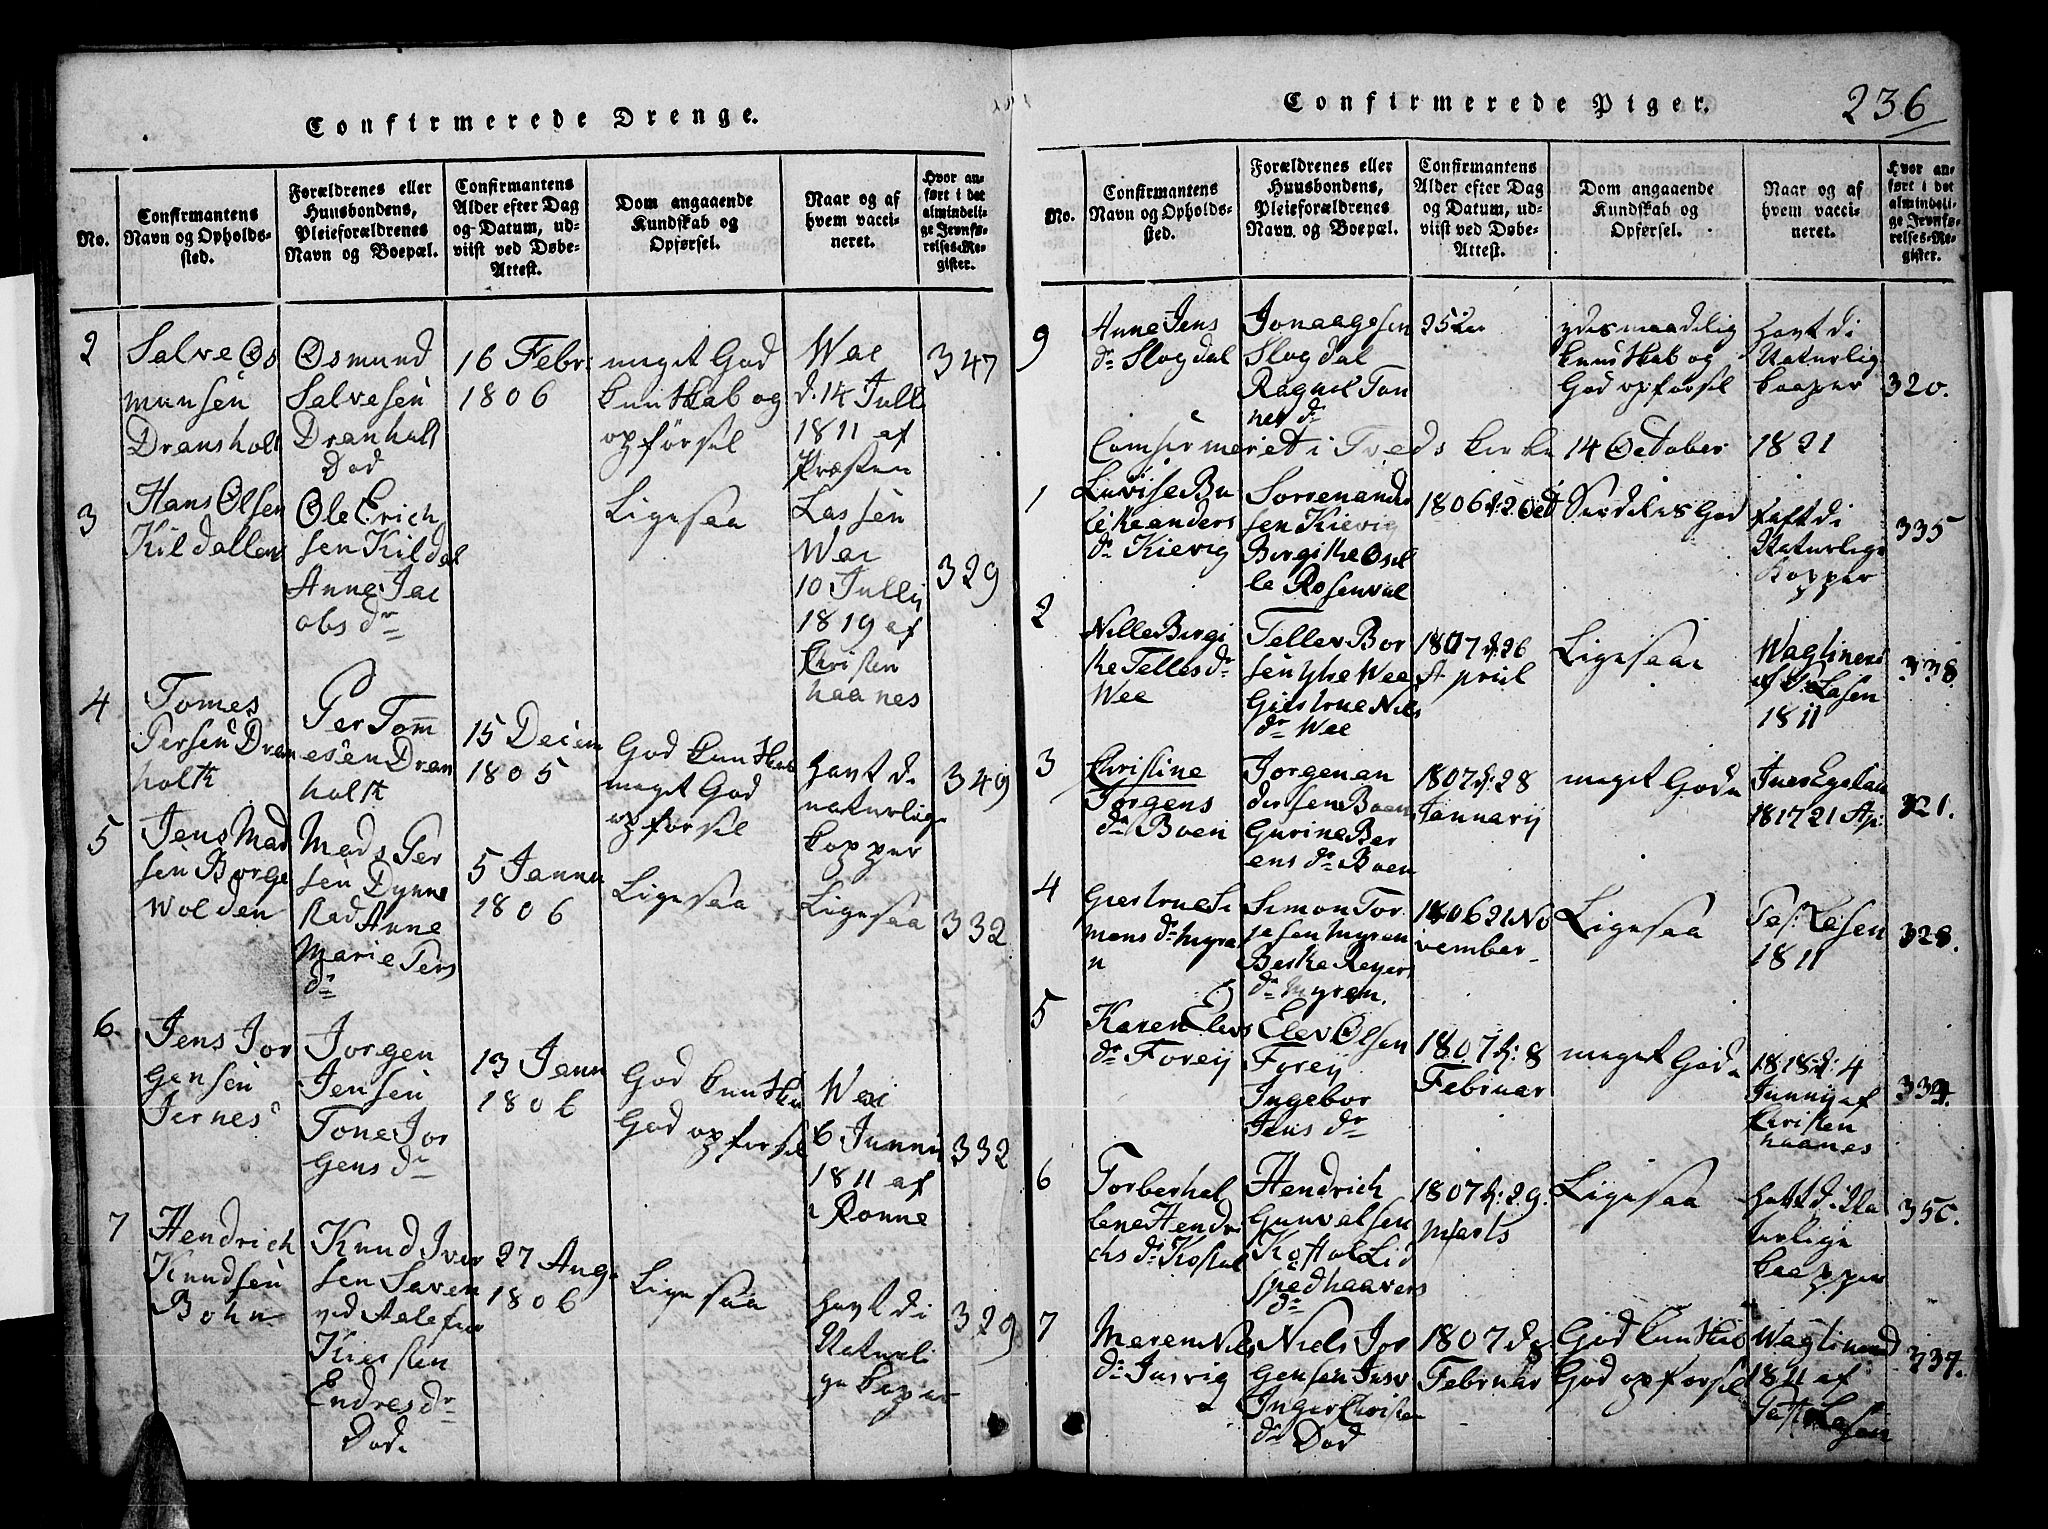 Confirmerede Drenge.
No.
Confirmantens
Navn og Opholds-
sted.
Forældrenes eller
Huusbondens,
Pleieforældrenes
Navn og Boepæl.
Confirmantens
Alder efter Dag
og Datum, ud-
viist ved Døbe-
Attest.
Dom angaaende
Kundskab og
Opførsel.
Naar og af
hvem vacci-
neret.
Hvor an-
ført i det
almindeli-
ge Jevnfø-
relses-Re-
gister.
2
Salve Os
munsen
Dransholt
Osmund
Salvesen
Dranholt
Død
16 Febr
1806
meget God
kunskab og
opførsel
Wac
d. 14 Julli
1811 af
Præsten
Lassen
347
3
Hans Olsen
Kildallen
Ole Erich
sen Kildal
Anne Jac
obs dr
Ligesaa
Wac
10 Julli
1819 af
Christen
haanes
329
4
Tomes
Persen Dran
holtt
Per Tomm
esen Dran
holtt
15 Decem
1805
God kunskab
meget God
opførsel
havt di
naturlige
kopper
349
5
Jens Mad
sen Borge
Wolden
Mads Per
sen Dynne
Rad Anne
Marie Pers
dr
5 Jannu
1806
Ligesaa
Ligesaa
332
6.
Jens Jor
gensen
Jernes
Jorgen
Jensen
Tone Jor
gens dr
13 Jenn
1806
God kunska
God opforsel
Wac
6 Junni
1811 af
Ronne
332
7
Hendrich
Knudsen
Bohn
Knud Iver
sen Saven
ved Aalefier
Kiersten
Endres dr
Dode
27 Aug
1806
Ligesaa
havt di
Naturli
ge koper
329
Confirmerede Piger.
236
No.
Confirmantens
Navn og Opholds-
sted.
Forældrenes eller
Huusbondens,
Pleieforældrenes
Navn og Boepæl.
Confirmantens
Alder efter Dag
og Datum, ud-
viist ved Døbe-
Attest.
Dom angaaende
Kundskab og
Opførsel.
Naar og af
hvem vacci-
neret.
Hvor an-
ført i det
almindeli-
ge Jevnfø-
relses-Re-
gister.
9
Anne Jens
dr Slogdal
Jon aagesen
Slogdal
Ragnil Ton
nes dr
25
maadelig
kunskab og
God opforsel
havt di
Naturlig
kaaper
320.
Comfirmeriet i Tveds kirke 14 October 1821
1
Luvise Bu
anders
dr Kievig
Sorren ander
sen Kievig
Birgitke Osil
le Rosenval
1806 d: 2 Oct
Serdeles God
haft di
Naturlige
Kopper
335
2
Nille Birgi
the Telles dr
Wee
Tellev Bor
sen Wee
Giertrue Nils
dr Wee
1807 d: 26
April
Ligesaa
Lasen
1811
338.
3
Christine
Jorgens
dr Boen
Jorgen an
dersen Boen
Gurine Ber
ens dr Boen
1807 d: 28
Januarij
meget God
1817 21 Ap:
321.
4
Giertrue Si
mons dr myre
n
Simon Tor
jesen myren
Berthe Reyers
dr myren.
1806 21 No
vember
Ligesaa
Lasen
1811
328.
5
Karen Elevs
dr Foreij
Elev Olsen
Foreij
Ingebor
Jens dr
1807 d: 8
Februar
meget God
1818 d: 4
Junny af
Christen
haanes
334.
6
Torber hel
lene Hendri
chs dr Kostøl
Hendrich
Gunvalsen
Kostøl Lid
haavers
dr
1807 d: 29.
marts
Ligesaa
haft di Na
turlige
kaapper
350.
7
Maren Nils
dr Jusvig
Niels Jor
gensen Jusv
Inger Christen
dr Dod
1807 d 8
Februar
God kunskab
God opforsel
1811 af
Past Lasen
337.